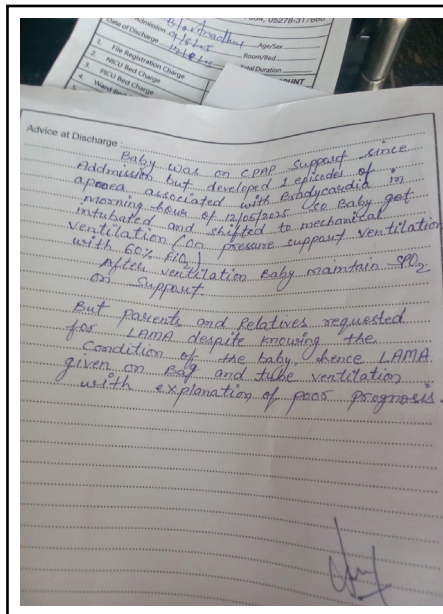 304, 05278-317600
Date of Discharge
Age/Sex
Room/Bed
Total Duration
1. File Registration Charge
2. NICU Bed Charge
3. PICU Bed Charge
4.
Advice at Discharge :
Baby was on CPAP support since
Addmission but developed 1 episodes of
apnea associated with Bradycardia in
morning hour of 12/05/2025 so Baby got
intubated and shifted to mechanical
ventilation (on pressure support ventilation
with 60% FiO2)
After ventilation Baby maintain SPO2
on support.
But parents and Relatives requested
for LAMA despite knowing the
condition of the baby, hence LAMA
given on Bag and tube ventilation
with explanation of poor prognosis.